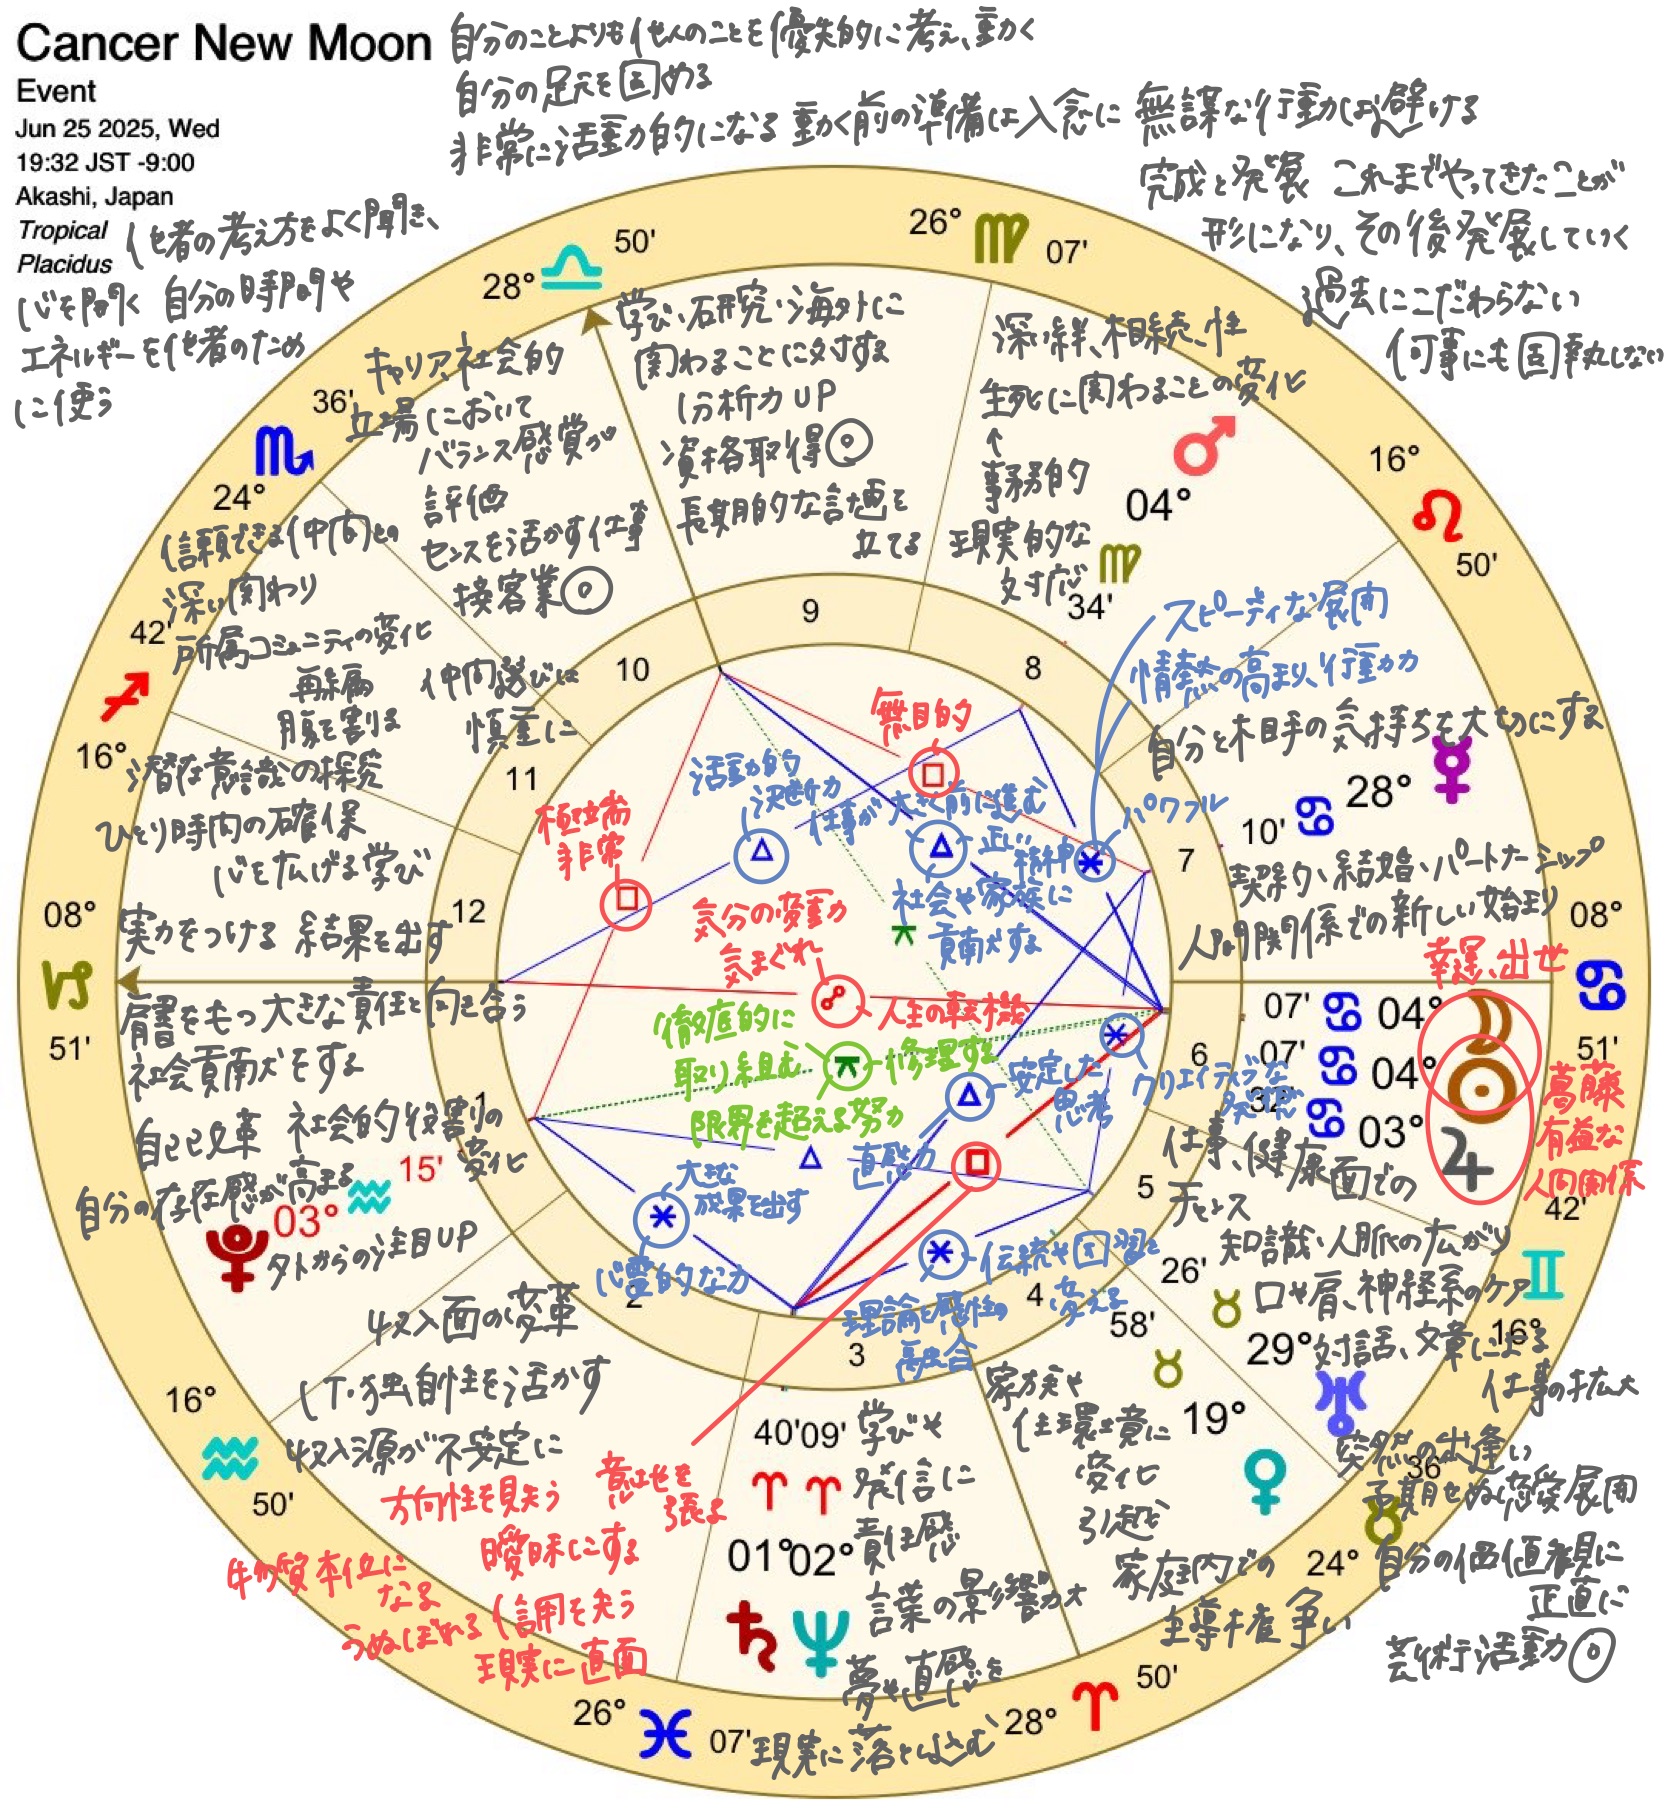 Cancer New Moon
Event
Jun 25 2025, Wed
19:32 JST -9:00
Akashi, Japan
Tropical
Placidus
自分のことよりも他人のことを優先的に考え、動く
自分の足元を固める
非常に活動力的になる 動く前の準備は入念に 無謀な行動は避ける
完成と発展 これまでやってきたことが
形になり、その後発展していく
過去にこだわらない
何事にも固執しない
他者の考え方をよく聞き、
心を開く 自分の時間や
エネルギーを他者のため
に使う
28° 50'
26° 07'
36'
24°
42'
16°
08°
51'
16°
50'
26° 07'
28° 50'
24°
36'
16°
42'
08°
51'
16°
50'
キャリア、社会的
立場において
バランス感覚が
評価
センスを活かす仕事
接客業◎
学び、研究、海外に
関わることに対する
分析力UP
資格取得◎
長期的な計画を
立てる
深い絆、相続、性
生死に関わることの変化
↑
事務的
現実的な
対応
04°
34'
スピーディな展開
情熱の高まり、行動力
パワフル
自分と相手の気持ちを大切にする
28°
10'
契約、結婚、パートナーシップ
人間関係での新しい始まり
幸運、出世
07' 04°
07' 04°
32' 03°
葛藤
有益な
人間関係
仕事、健康面での
チャンス
知識、人脈の広がり
口や肩、神経系のケア
対話、文章による
仕事の拡大
26'
29°
58'
19°
突然の出逢い
予期せぬ恋愛展開
自分の価値観に
正直に
芸術活動◎
家族や
住環境に
変化
引越し
家庭内での
主導権争い
40' 09'
01° 02°
学びや
発信に
責任感
言葉の影響力大
夢や直感を
現実に落とし込む
信頼できる仲間との
深い関わり
所属コミュニティの変化
再編
腹を割る
仲間選びに
慎重に
潜在意識の探究
ひとり時間の確保
心を広げる学び
実力をつける 結果を出す
肩書をもつ 大きな責任と向き合う
社会貢献をする
自己改革 社会的役割の
変化
自分の存在感が高まる
15'
03°
外からの注目UP
収入面の変革
IT・独自性を活かす
収入源が不安定に
方向性を見失う
意地を
張る
曖昧にする
物質本位に
なる
うぬぼれる
信用を失う
現実に直面
無目的
極端
非常
活動的
決断力
仕事が大きく前に進む
正しい
精神
社会や家族に
貢献する
気分の変動
気まぐれ
人生の転機
徹底的に
取り組む
修理する
限界を超える努力
安定した
思考
直感力
クリエイティブな
発想
大きな
成果を出す
心霊的な力
伝統や因習を
変える
理論と感性の
融合
1
2
3
4
5
6
7
8
9
10
11
12